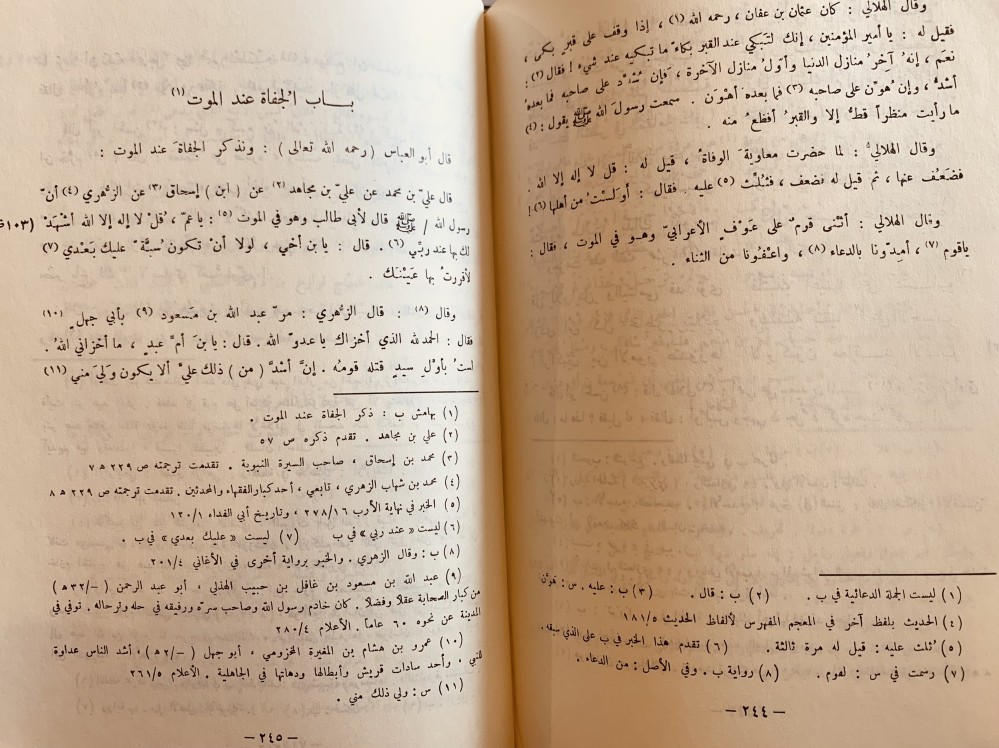 وقال الهلالي : كان عثمان بن عفان ، رحمه الله (١) ، إذا وقف على قبرٍ بكى ،
فقيل له : يا أمير المؤمنين ، إنك لتبكي عند القبر بكاءً ما تبكيه عند شيء ! فقال (٢) :
نعم ، إنهُ آخِرُ منازل الدنيا وأوّلُ منازل الآخرة ، فإن شُدّد على صاحبه فما بعدهُ
أشدُّ ، وإن هُوّن على صاحبه (٣) فما بعده أهْوَن . سمعت رسولَ الله ﷺ يقول : (٤)
ما رأيت منظراً قطُّ إلا والقبرُ أفظعُ منه .
وقال الهلاليُّ : لما حضرت معاويةَ الوفاةُ ، قيل له : قل لا إله إلا الله .
فضَعُف عنها ، ثم قيل له فضعف ، فثُلِّثَ (٥) عليه . فقال : أوَلستُ من أهلها (٦) !
وقال الهلالي : أثنى قومٌ على عَوْفٍ الأعرابيّ وهو في الموت ، فقال :
ياقوم (٧) ، أمِدّونا بالدعاء (٨) ، واعْفُونا من الثناء .
(١) ليست الجملة الدعائية في ب . (٢) ب : قال . (٣) ب : عليه . س : تهون
(٤) الحديث بلفظ آخر في المعجم المفهرس لألفاظ الحديث ١٨١/٥
(٥) ثلث عليه : قيل له مرة ثالثة . (٦) تقدم هذا الخبر في ب على الذي سبقه .
(٧) رسمت في س : لقوم . (٨) رواية ب . وفي الأصل : من الدعاء .
— ٢٤٤ —
بـــاب الجفاة عند الموت (١)
قال أبو العباس ( رحمه الله تعالى ) : ونذكر الجفاةَ عند الموت :
قال عليّ بن محمد عن عليّ بن مجاهد (٢) عن ( ابن ) إسحاق (٣) عن الزهري (٤) أنّ
رسول الله / ﷺ قال لأبي طالب وهو في الموت (٥) : ياعمّ ، قلْ لا إله إلا الله أشْهَدْ
لك بها عند ربّي (٦) . قال : يابن أخي ، لولا أنْ تكون سُبّةً عليك بَعْدي (٧)
لأقررتُ بها عَيْنَك .
وقال (٨) : قال الزهري : مرّ عبد الله بن مَسعود (٩) بأبي جهلٍ (١٠)
فقال : الحمد لله الذي أخزاك يا عدوّ الله . قال : يابنَ أمِّ عبدٍ ، ما أخزاني اللهُ .
لستُ بأولِ سيدٍ قتله قومُه . إنَّ أشدَّ ( من ) ذلك عليَّ ألا يكون وَلِيَ مني (١١)
(١) بهامش ب : ذكر الجفاة عند الموت .
(٢) علي بن مجاهد . تقدم ذكره س ٥٧
(٣) محمد بن إسحاق ، صاحب السيرة النبوية . تقدمت ترجمته ص ٢٢٩ ه ٧
(٤) محمد بن شهاب الزهري ، تابعي ، أحد كبار الفقهاء والمحدثين . تقدمت ترجمته ص ٢٢٩ ه ٨
(٥) الخبر في نهاية الأرب ٢٧٨/١٦ ، وتاريخ أبي الفداء ١٢٠/١
(٦) ليست « عند ربي » في ب (٧) ليست « عليك بعدي » في ب .
(٨) ب : وقال الزهري . والخبر برواية أخرى في الأغاني ٢٠١/٤
(٩) عبد الله بن مسعود بن غافل بن حبيب الهذلي ، أبو عبد الرحمن ( –/٣٢ ه )
من كبار الصحابة عقلاً وفضلاً . كان خادم رسول الله وصاحب سرّه ورفيقه في حله وترحاله . توفي في
المدينة عن نحو ٦٠ عاماً . الأعلام ٢٨٠/٤
(١٠) عمرو بن هشام بن المغيرة المخزومي ، أبو جهل ( –/٢ ه ) ، أشد الناس عداوة
للنبي ، وأحد سادات قريش وأبطالها ودهاتها في الجاهلية . الأعلام ٢٦١/٥
(١١) س : ولي ذلك مني .
— ٢٤٥ —